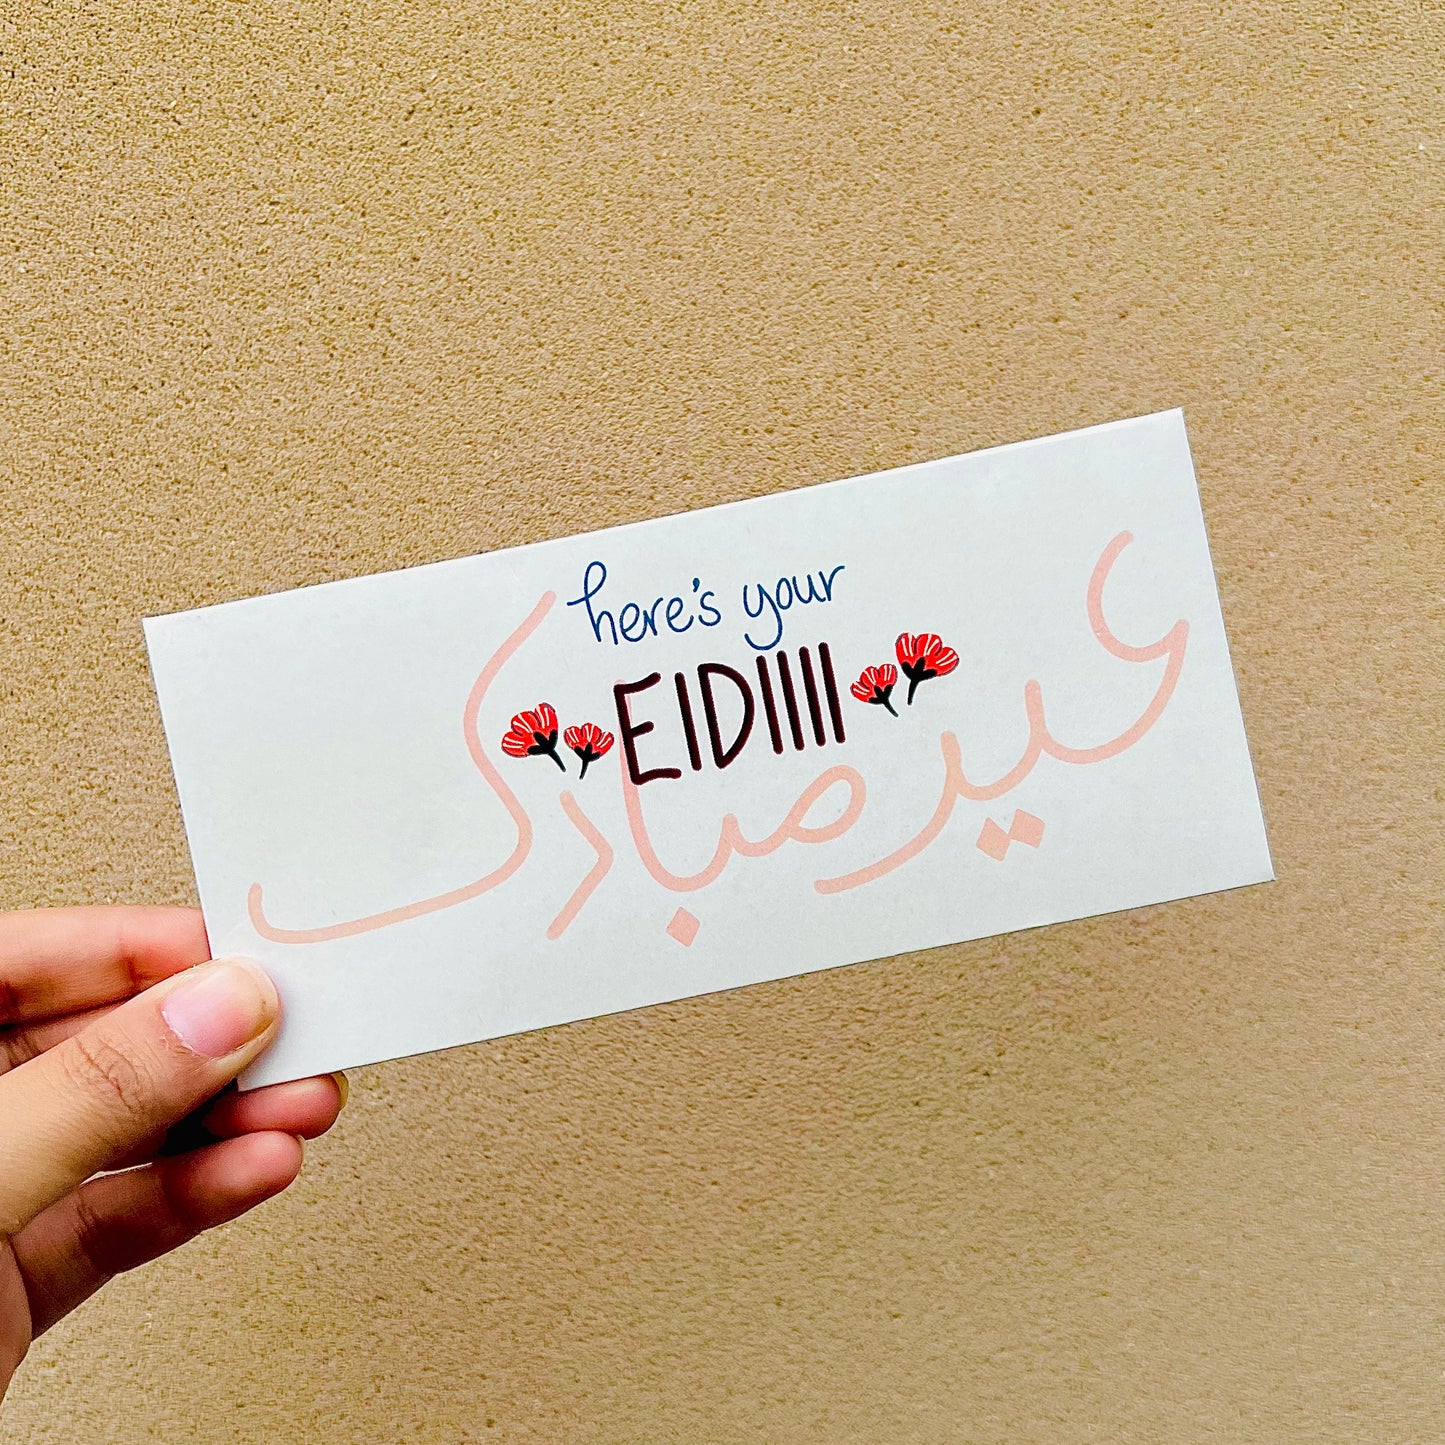 here's your
EIDIIII
عيد مبارك